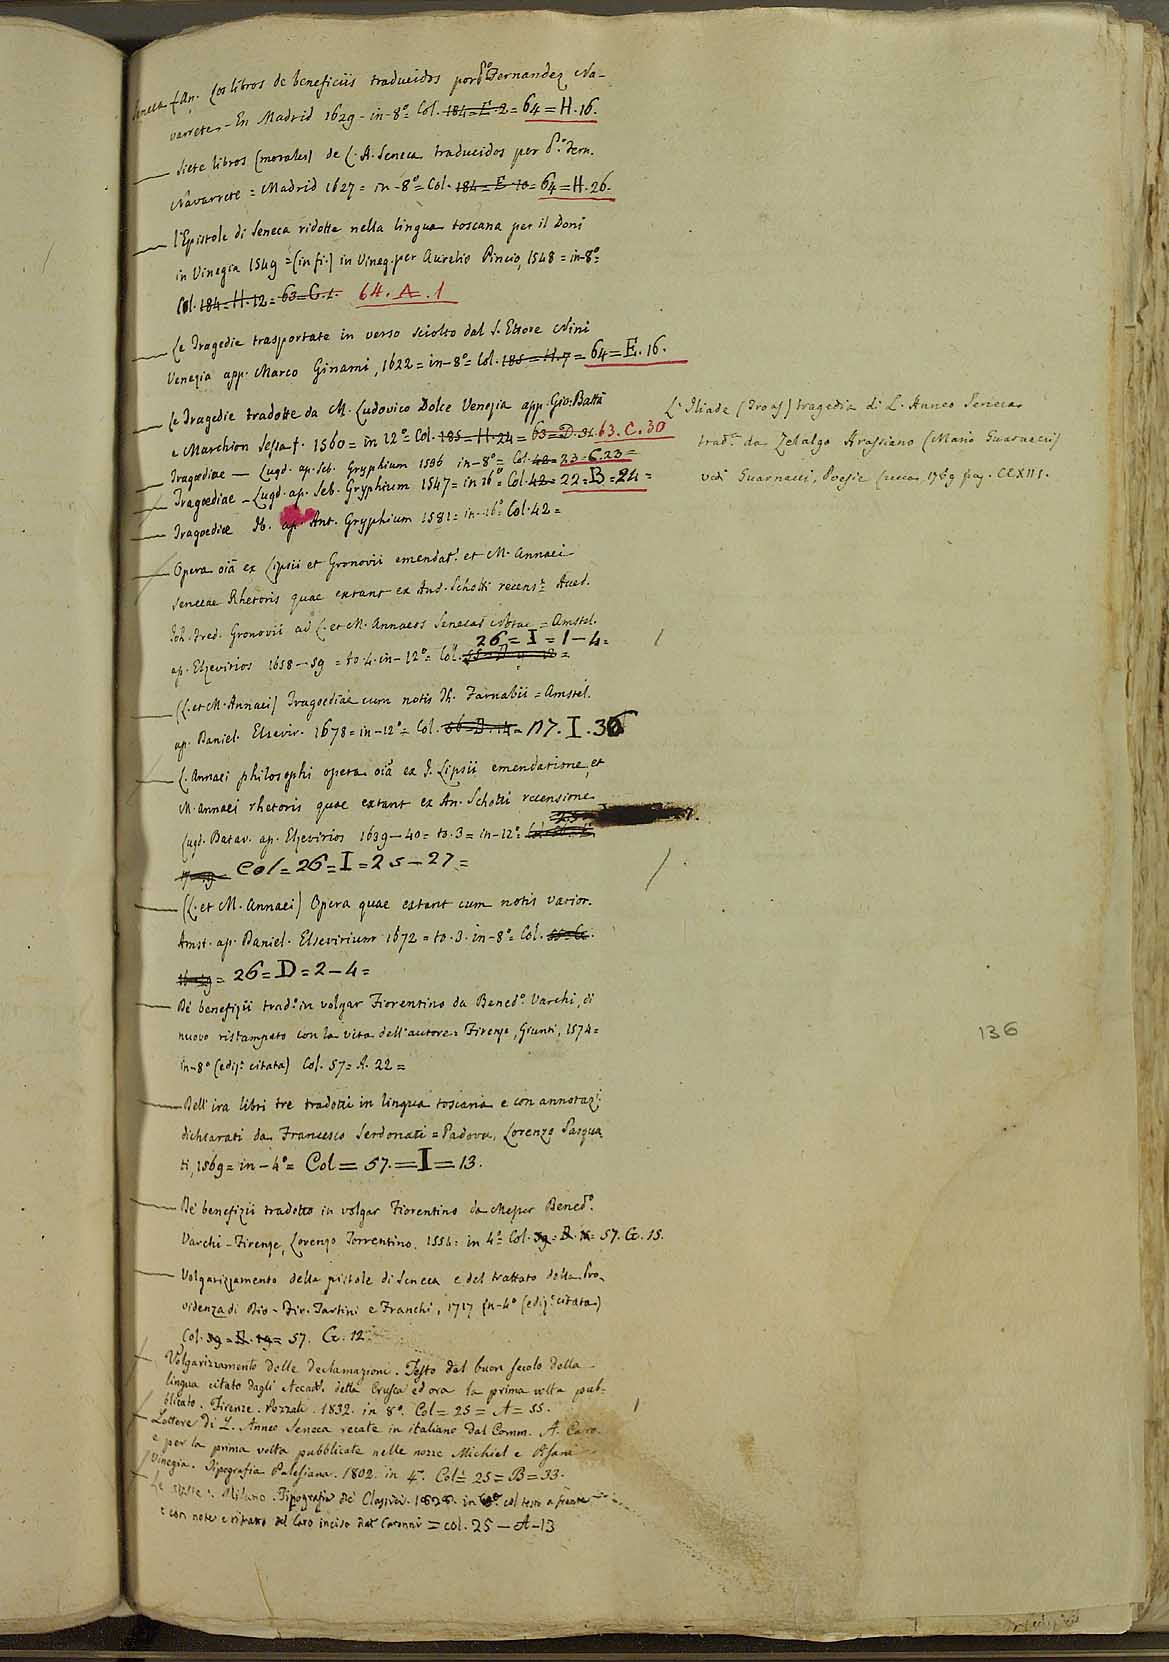 Seneca f An. Los libros de beneficiis traducidos por Po Fernandez Na-
varrete - En Madrid 1629 - in-8º= Col. 184=E-2= 64=H.16.
Siete libros (morales) de L. A. Seneca traducidos per P.º Fern.
Navarrete = Madrid 1627= in-8º=Col. 184=E-10= 64=H.26.
l'Epistole di Seneca ridotte nella lingua toscana per il Doni
in Vinegia 1549 =(in fi.) in Vineg. per Aurelio Pincio, 1548 = in-8º=
Col. 184=H.12= 63=G.1. 64.A.1
Le Tragedie trasportate in verso sciolto dal S. Ettore Nini
Venezia app. Marco Ginami, 1622= in-8º= Col. 185=H.7= 64=E.16.
Le Tragedie tradotte da M. Ludovico Dolce Venezia app. Gio: Batta
e Marchion Sessa f. 1560= in 12º= Col. 185=H.24= 63=D.31. 63.C.30
Tragœdiae — Lugd. ap. Seb. Gryphium 1596 in-8º= Col. 42=23=C.23=
Tragœdiae - Lugd. ap. Seb. Gryphium 1547= in 16º Col. 42= 22=B=24=
Tragoediae Ib. ap. Ant. Gryphium 1581= in-16º Col. 42=
Opera oiã ex Lipsii et Gronovii emendat. et M. Annaei
Senecae Rhetoris quae extant ex And. Schotti recens: Aced.
Joh. Fred. Gronovii ad L. et M. Annaeos Senecas Notae = Amstel.
26=I=1-4=
ap. Elzevirios 1658-59 = to. 4. in-12º= Col.
(L. et M. Annaei) Tragoediae cum notis Th. Farnabii = Amstel.
ap. Daniel. Elsevir. 1678= in-12º= Col. 56=D.14= 117.I.36
L. Annaei philosophi opera oiã ex J. Lipsii emendatione, et
M. Annaei rhetoris quae extant ex An. Schotti recensione
Lugd. Batav. ap. Elzevirios 1639-40= to. 3= in-12º=
Col=26=I=25-27=
(L. et M. Annaei) Opera quae extant cum notis varior.
Amst. ap. Daniel. Elsevirium 1672= to. 3. in-8º= Col. 55=G.
= 26=D=2-4=
De' benefizii trad.º in volgar Fiorentino da Bened.º Varchi, di
nuovo ristampato con la vita dell'autore= Firenze, Giunti, 1574=
in-8º (ediz.e citata) Col. 57= A. 22=
Dell'ira libri tre tradotti in lingua toscana e con annotaz.i
dichiarati da Francesco Serdonati = Padova, Lorenzo Pasqua
ti, 1569= in-4º= Col= 57.=I=13.
De' benefizii tradotto in volgar Fiorentino da Messer Bened.º
Varchi - Firenze, Lorenzo Torrentino. 1554: in 4º= Col. 57. G. 15.
Volgarizzamento della pistole di Seneca e del trattato della Pro-
videnza di Dio - Fir. Tartini e Franchi, 1717 in-4º (ediz.e citata)
Col. 57. G. 12.
Volgarizzamento delle declamazioni. Testo del buon secolo della
lingua citato dagli Accad. della Crusca ed ora la prima volta pub-
blicato. Firenze. Pezzati. 1832. in 8º. Col= 25= A= 55.
Lettere di L. Anneo Seneca recate in italiano dal Comm. A. Caro
e per la prima volta pubblicate nelle nozze Michiel e Pisani
Vinegia. Tipografia Palesiana. 1802. in 4º. Col= 25=B=33.
Le stesse. Milano. Tipografia de' Classici. 1828. in col testo a fronte
e con note e ritratto del Caro inciso dal Caronni = col. 25-A-13
L'Iliade (Troas) tragedia di L. Anneo Seneca
trad.ª da Zelalgo Arassiano (Mario Guarnacci)
vedi Guarnacci, Poesie Lucca, 1769 pag. CCXIII.
136